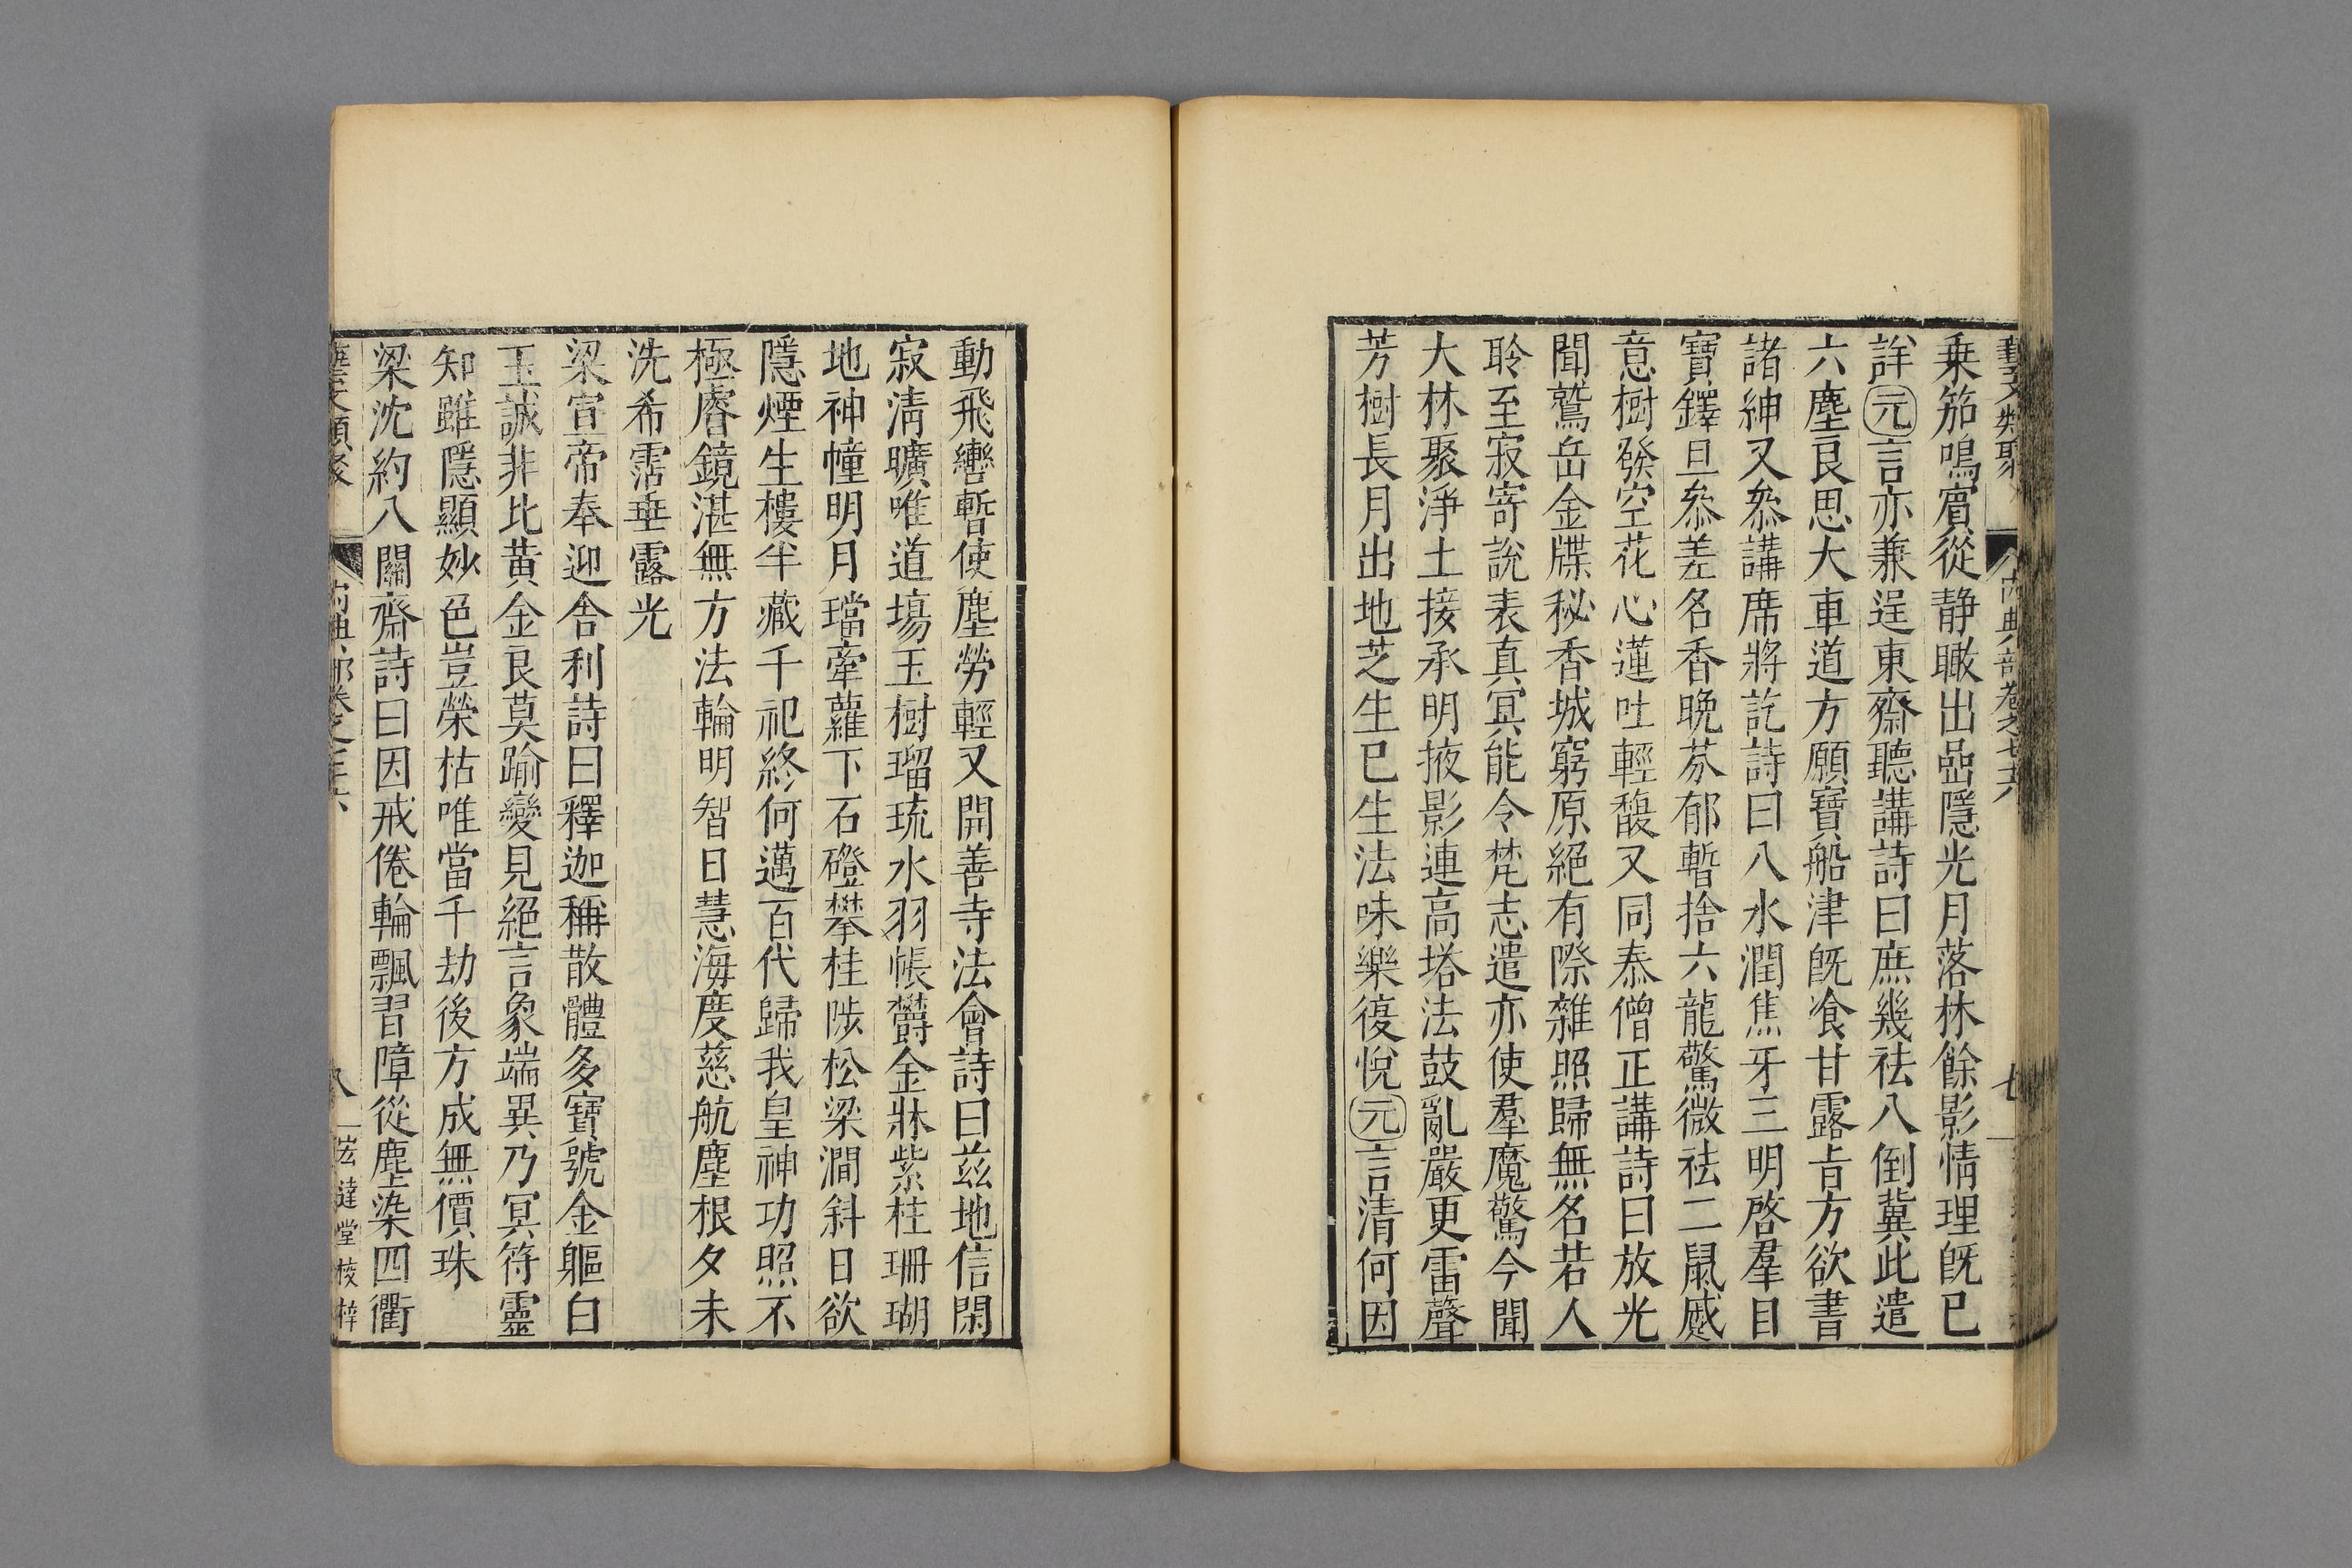 藝文類聚 內典部卷之七十六 七
乗笳鳴賔從静瞰出嵒隱光月落林餘影情理旣已
詳元言亦兼逞東齋聽講詩曰庶幾祛八倒冀此遣
六塵良思大車道方願寶船津旣飡甘露㫖方欲書
諸紳又叅講席將訖詩曰八水潤焦牙三明啓羣目
寶鐸旦叅差名香晚芬郁暫捨六龍驚微祛二鼠蹙
意樹發空花心蓮吐輕馥又同泰僧正講詩曰放光
聞鷲岳金牒秘香城窮原絕有際雜照歸無名若人
聆至寂寄說表真冥能令梵志遣亦使羣魔驚今聞
大林聚淨土接承明掖影連高塔法鼓亂嚴更雷聲
芳樹長月出地芝生已生法味樂復悅元言清何因
動飛轡暫使塵勞輕又開善寺法會詩曰兹地信閑
寂清曠唯道塲玉樹瑠琉水羽帳欝金牀紫柱珊瑚
地神幢明月璫牽蘿下石磴攀桂陟松梁澗斜日欲
隱煙生樓半藏千祀終何邁百代歸我皇神功照不
極睿鏡湛無方法輪明智日慧海度慈航塵根夕未
洗希霑垂露光
梁宣帝奉迎舎利詩曰釋迦稱散體多寶號金軀白
玉誠非比黄金良莫踰變見絕言象端異乃冥符靈
知雖隱顯妙色豈榮枯唯當千劫後方成無價珠
梁沈約八關齋詩曰因戒倦輪飄習障從塵染四衢
藝文類聚 內典部卷之七十六 八 宏達堂校梓